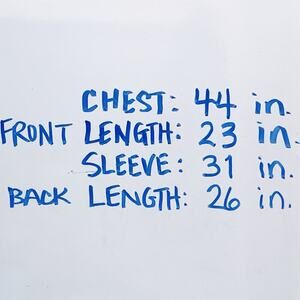 CHEST: 44 in.
FRONT LENGTH: 23 in.
SLEEVE: 31 in.
BACK LENGTH: 26 in.